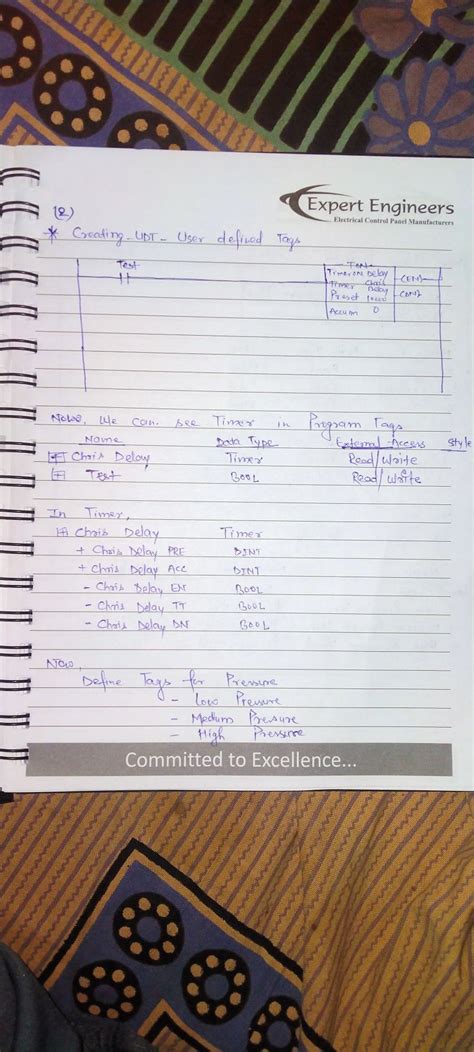 Expert Engineers
Electrical Control Panel Manufacturers
(2)
* Creating UDT - User defined Tags
Test
TON
Timer ON Delay (EN)
Timer Chris Delay (DN)
Preset 10000
Accum 0
Now, We can see Timer in Program Tags
Name Data Type External Access Style
+ Chris Delay Timer Read/Write
Test BOOL Read/Write
In Timer,
+ Chris Delay Timer
+ Chris Delay PRE DINT
+ Chris Delay ACC DINT
- Chris Delay EN BOOL
- Chris Delay TT BOOL
- Chris Delay DN BOOL
Now,
Define Tags for Pressure
- Low Pressure
- Medium Pressure
- High Pressure
Committed to Excellence...